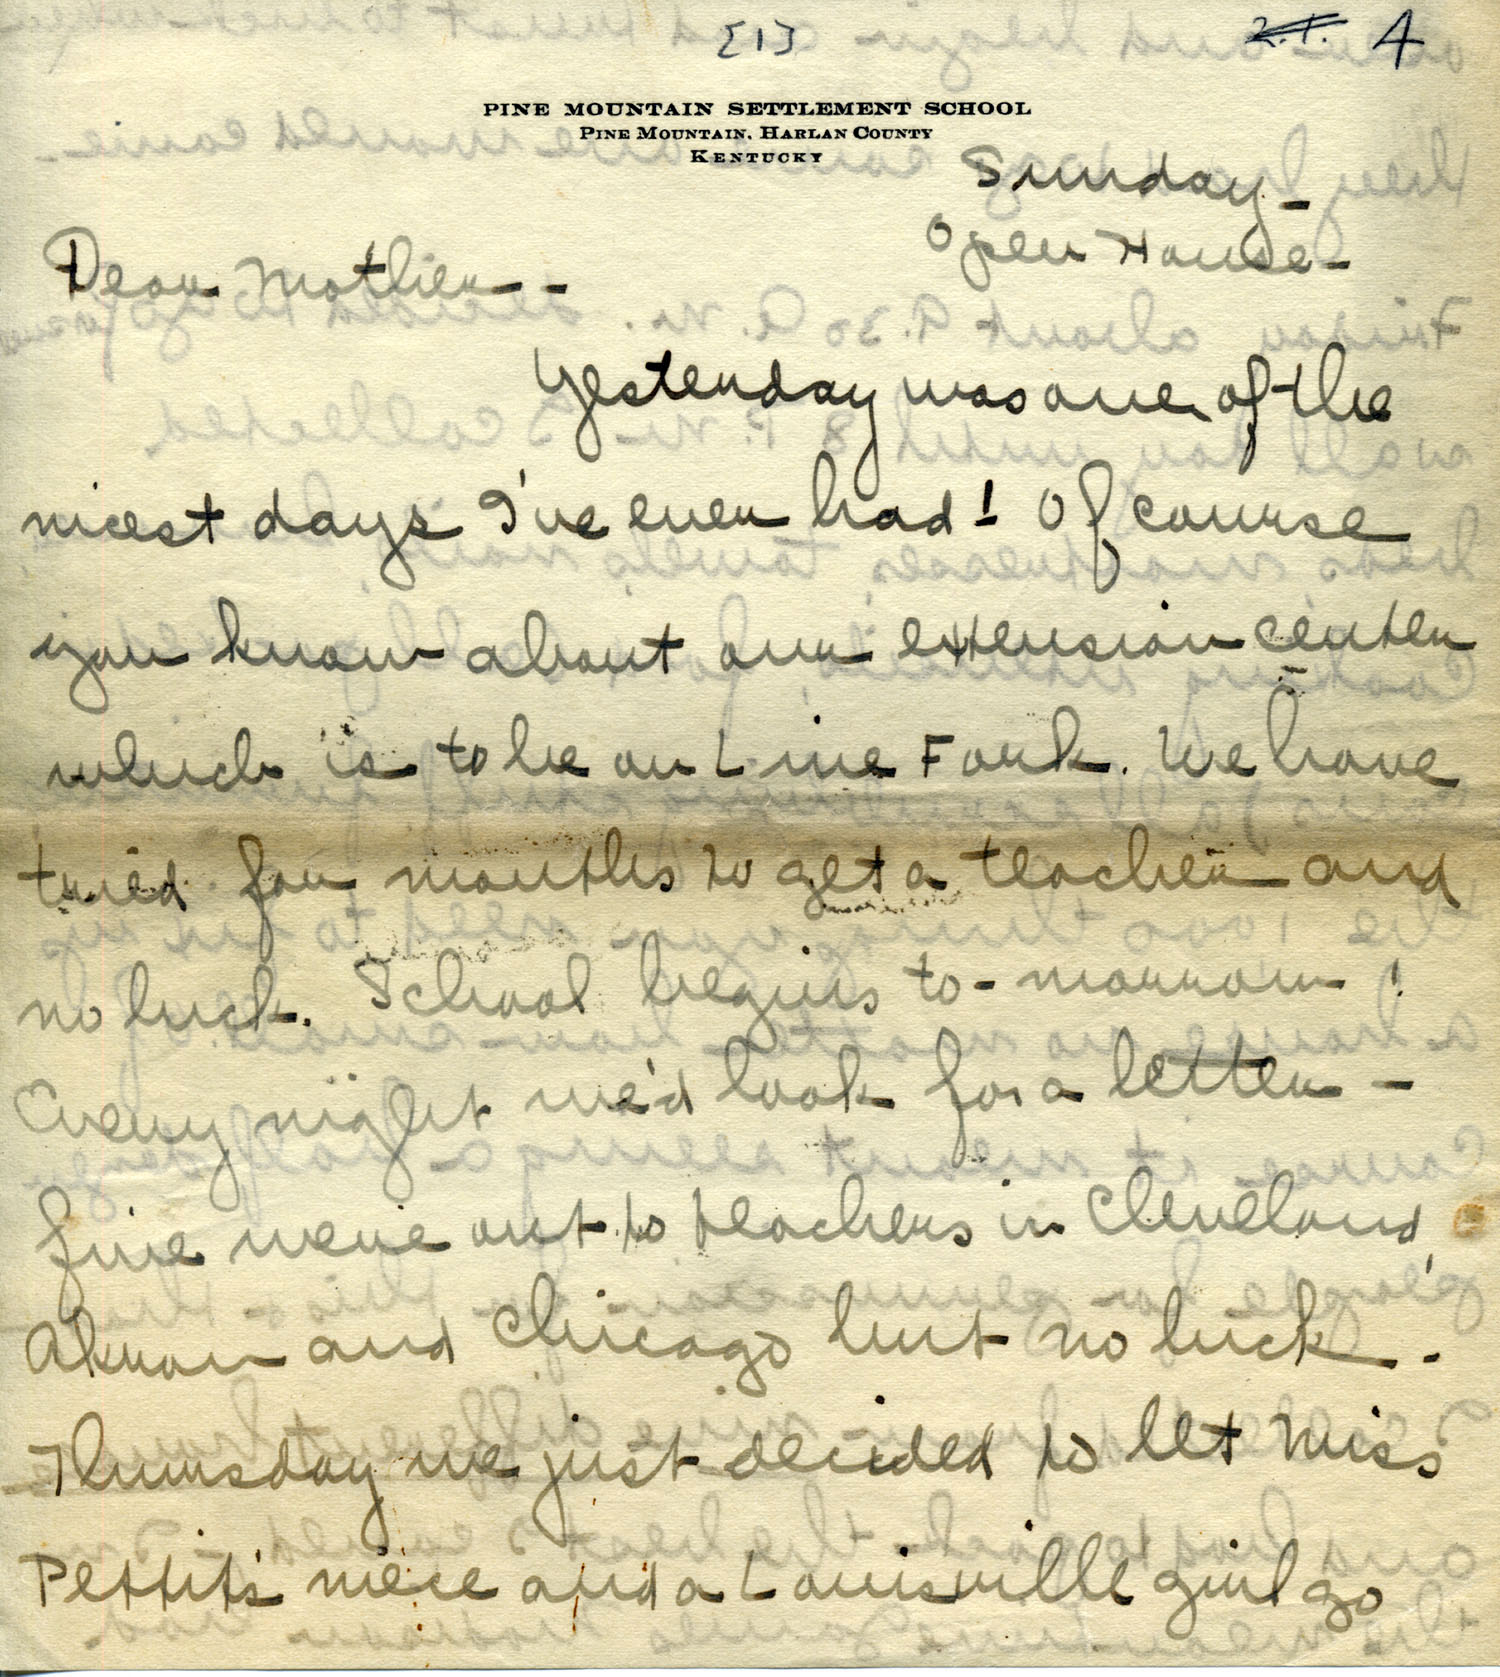 [1] 4
PINE MOUNTAIN SETTLEMENT SCHOOL
PINE MOUNTAIN, HARLAN COUNTY
KENTUCKY
Sunday -
Open House -
Dear Mother - -
Yesterday was one of the
nicest days I've ever had! Of course
you know about our extension center
which is to be on Line Fork. We have
tried for months to get a teacher and
no luck. School begins to-morrow!
Every night we'd look for a letter -
five were out to teachers in Cleveland,
Akron and Chicago but no luck -
Thursday we just decided to let Miss
Pettit's niece and a Louisville girl go